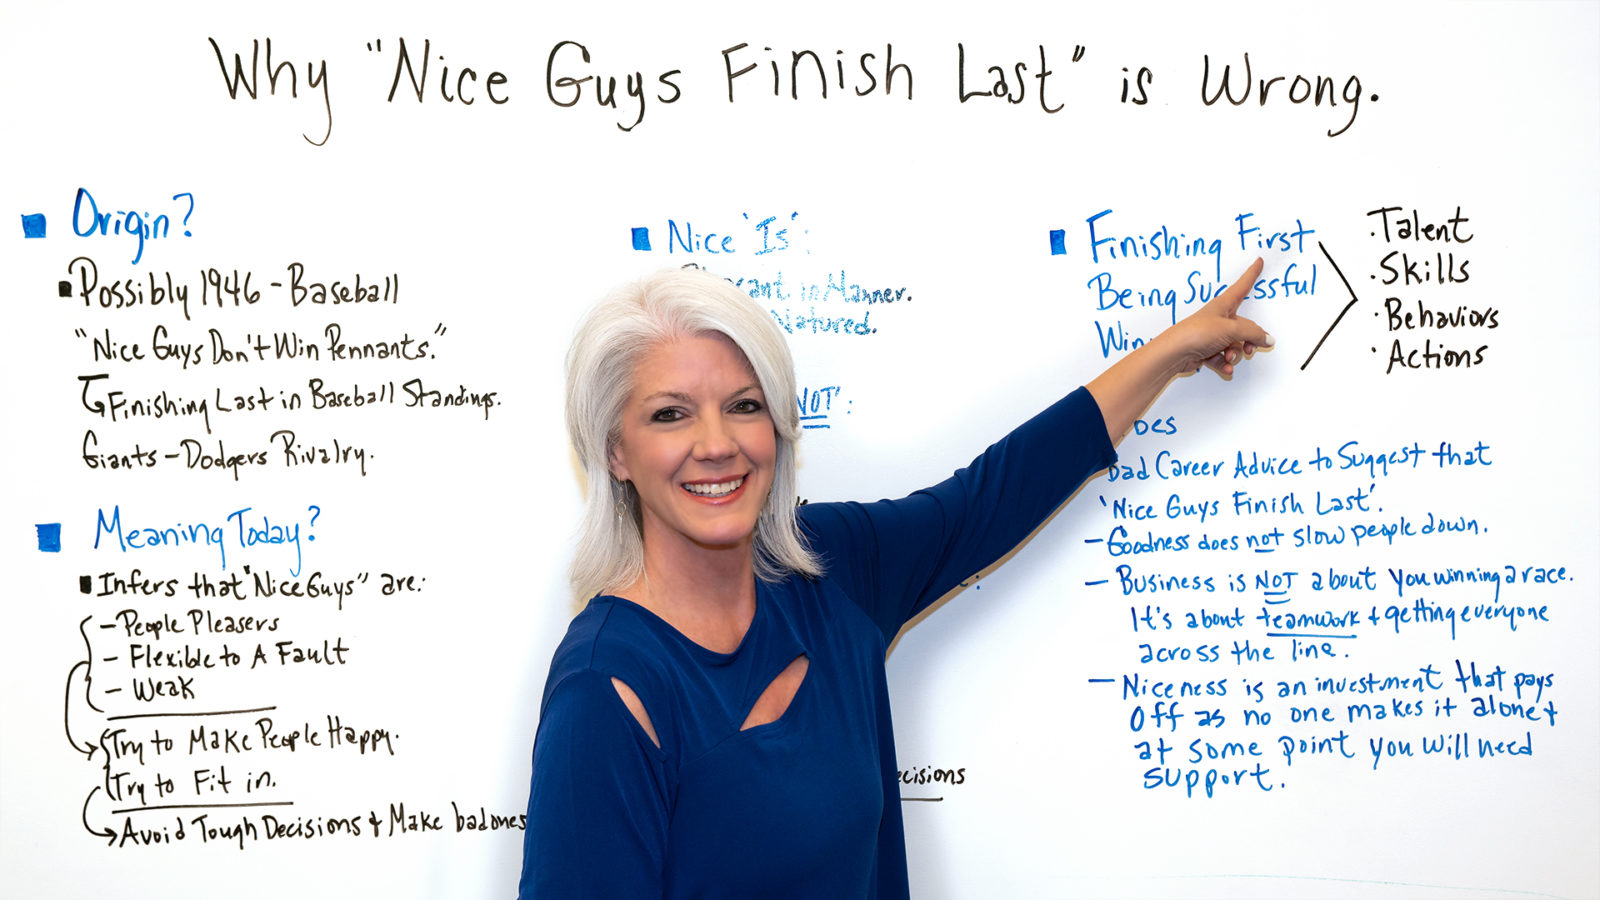 Why "Nice Guys Finish Last" is Wrong.
Origin?
Possibly 1946 - Baseball
"Nice Guys Don't Win Pennants."
Finishing Last in Baseball Standings.
Giants - Dodgers Rivalry.
Meaning Today?
Infers that "Nice Guys" are:
- People Pleasers
- Flexible to A Fault
- Weak
Try to Make People Happy.
Try to Fit in.
Avoid Tough Decisions & Make bad ones
Nice 'Is':
in Manner.
Natured.
NOT':
Finishing First
Being Successful
· Talent
· Skills
· Behaviors
· Actions
Career Advice to Suggest that
'Nice Guys Finish Last'.
- Goodness does not slow people down.
- Business is NOT about you winning a race.
It's about teamwork & getting everyone
across the line.
- Niceness is an investment that pays
Off as no one makes it alone &
at some point you will need
support.